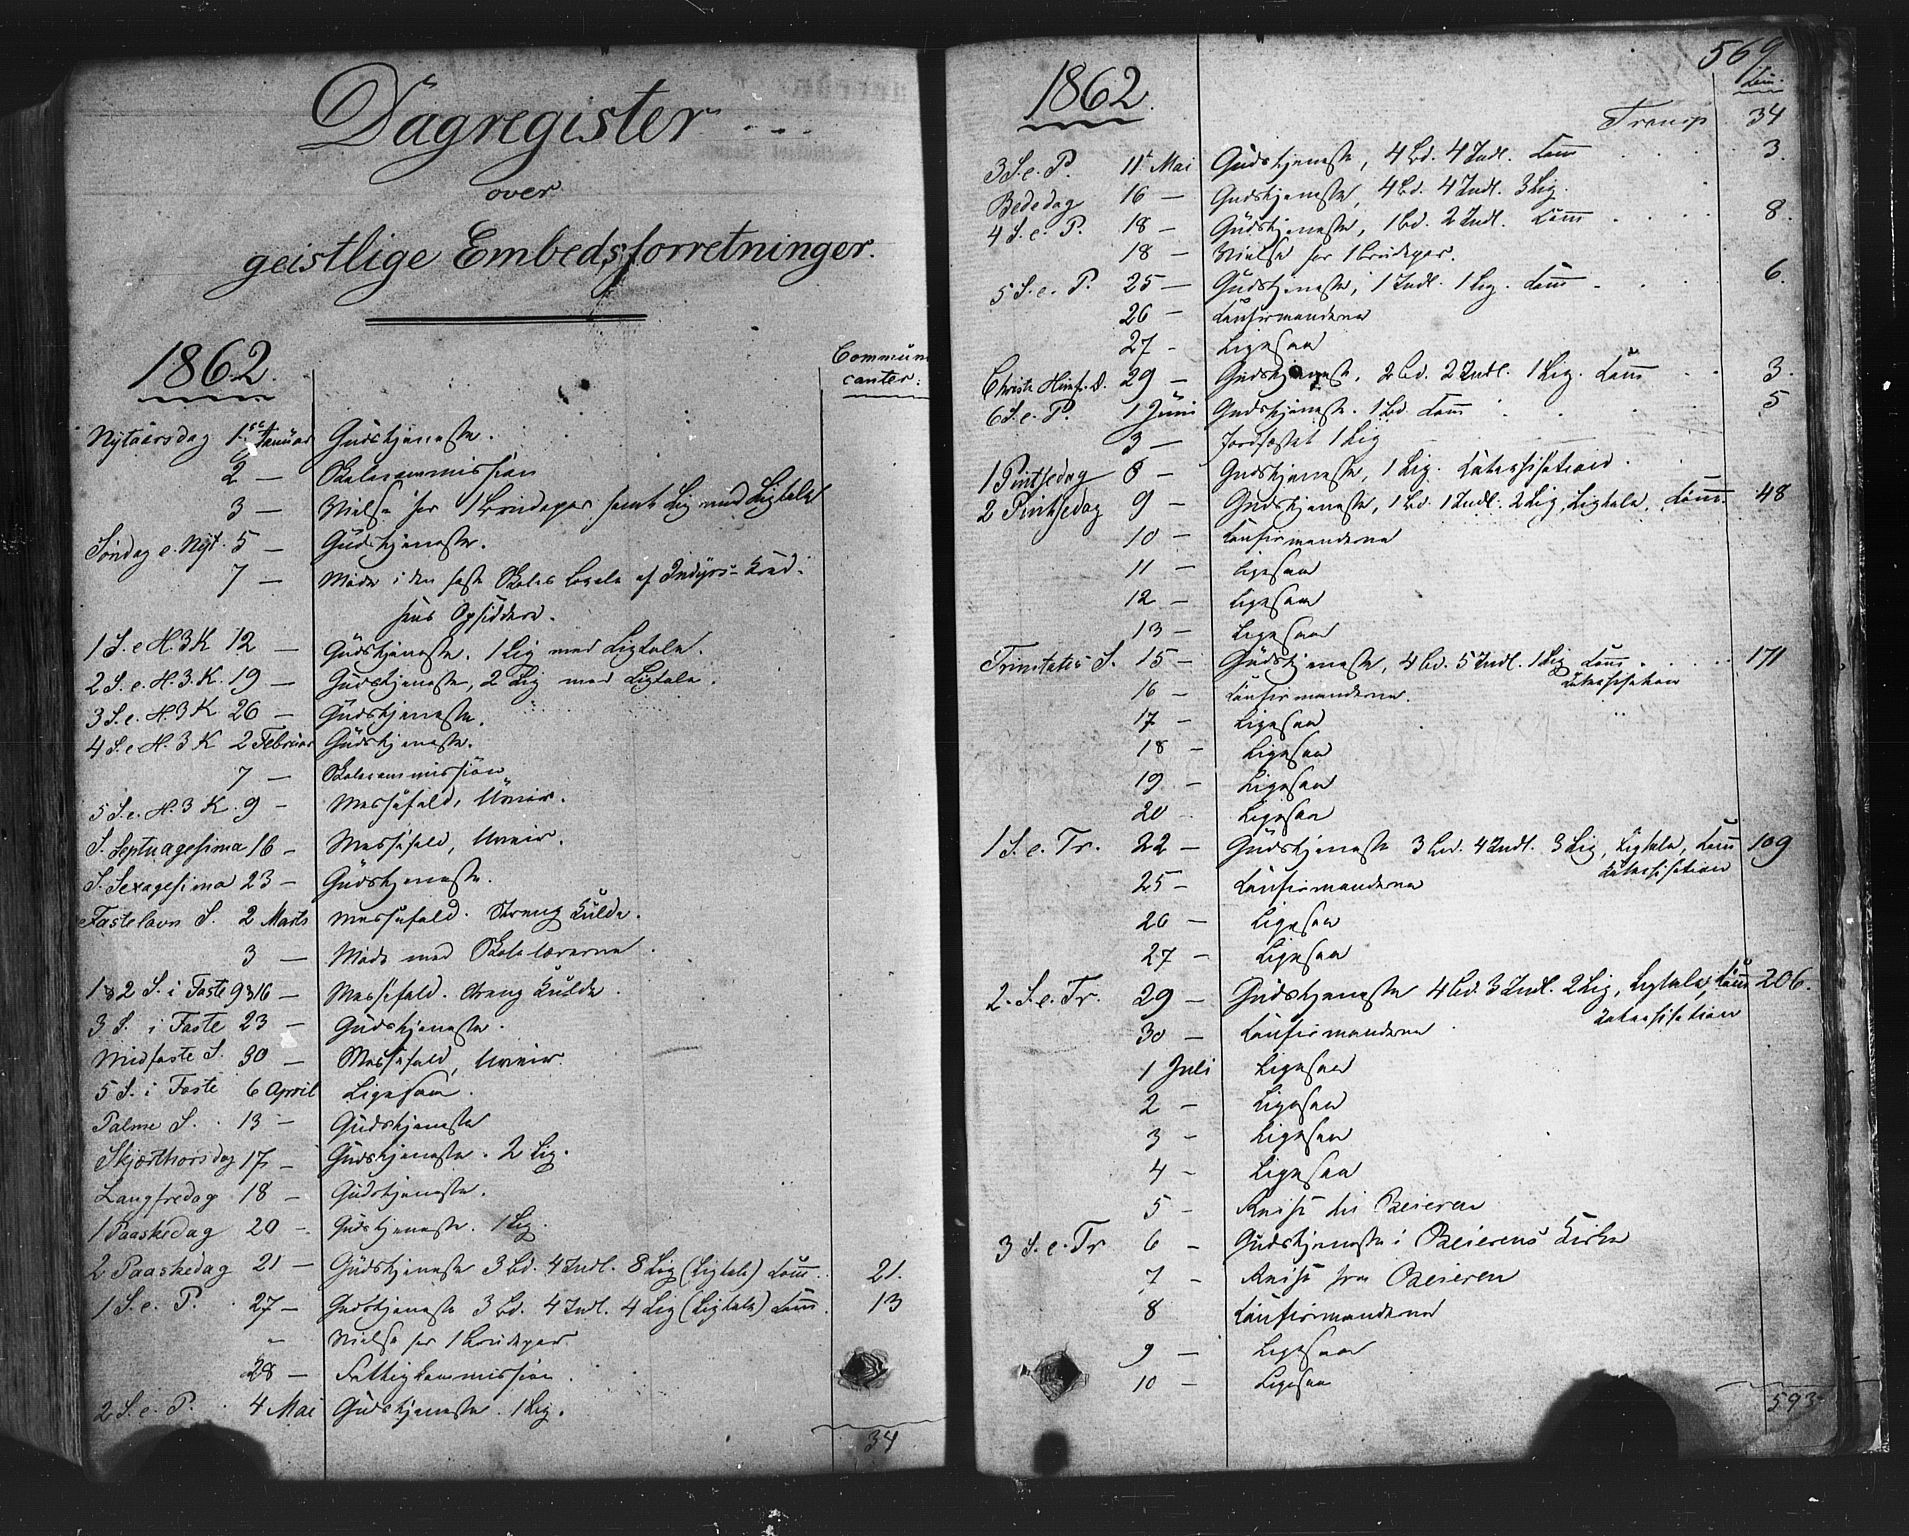 Dagregister
over
geistlige Embedsforretninger.
1862.
Communi
canter:
Nytaarsdag 1ste Januar Gudstjeneste.
2 — Skolecommission
3 — Vielse for 1 Brudepar samt Lig med Ligtale
Søndag e. Nyt. 5 — Gudstjeneste.
7 — Møde i den faste Skoles Locale af Indyrs-Kred-
sens Opsiddere.
1 S. e H. 3 K 12 — Gudstjeneste. 1 Lig med Ligtale.
2 S. e. H. 3. K. 19 — Gudstjeneste, 2 Lig med Ligtale.
3 S. e. H. 3 K 26 — Gudstjeneste.
4 S. e H. 3 K 2 Februar Gudstjeneste.
7 — Skolecommission
5 S. e. H. 3 K. 9 - Messefald, Uveir.
S. Septuagesima 16 — Messefald, Uveir.
S. Sexagesima 23 — Gudstjeneste.
Fastelavn S. 2 Marts Messefald. Streng Kulde.
3 — Møde med Skolelærerne.
1 & 2 S. i Faste 9 & 16 — Messefald. streng Kulde.
3 S. i Faste 23 — Gudstjeneste.
Midfaste S. 30 — Messefald, Uveir.
5 S. i Faste 6 April Ligesaa.
Palme S. 13 — Gudstjeneste
Skjærthorsdag 17 — Gudstjeneste. 2 Lig.
Langfredag 18 — Gudstjeneste.
1 Paaskedag 20 — Gudstjeneste. 1 Lig.
2 Paaskedag 21 — Gudstjeneste 3 Bd. 4 Indl. 8 Lig (Ligtale) Com. 21.
1 S. e. P. 27 — Gudstjeneste 3 Bd. 4 Indl. 4 Lig (Ligtale) Com. 13
" Vielse for 1 Brudepar.
28 — Fattigkommission.
2 S. e. P. 4 Mai Gudstjeneste. 1 Lig.
34
569
1862. Com.
Transp. 34
3 S. e. P. 11t Mai Gudstjeneste, 4 Bd. 4 Indl. Com 3.
Bededag 16 — Gudstjeneste, 4 Bd. 4 Indl. 3 Lig.
4 S. e. P. 18 — Gudstjeneste, 1 Bd. 2 Indl. Com 8.
18 — Vielse for 1 Brudepar.
5 S. e. P. 25 — Gudstjeneste, 1 Indl. 1 Lig. Com 6.
26 — Confirmanderne
27 - Ligesaa
Christi Himf. D. 29 — Gudstjeneste, 2 Bd. 2 Indl. 1 Lig. Com 3.
6 S. e. P. 1 Juni Gudstjeneste. 1 Bd. Com 5
3 — Jordfæstet 1 Lig
1 Pintsedag 8 — Gudstjeneste, 1 Lig. Katechisation.
2 Pintsedag 9 — Gudstjeneste, 1 Bd. 1 Indl. 2 Lig, Ligtale, Com 48
10 — Confirmanderne
11 — Ligesaa
12 — Ligesaa
13 — Ligesaa
Trinitatis S. 15 — Gudstjeneste, 4 Bd. 5 Indl. 1 Lig Com 171
Katechisation
16 — Confirmanderne.
17 — Ligesaa
18 — Ligesaa
19 — Ligesaa
20 — Ligesaa
1 S. e. Tr. 22 — Gudstjeneste 3 Bd. 4 Indl. 3 Lig, Ligtale, Com 109
Katechisation
25 — Confirmanderne
26 — Ligesaa
27 — Ligesaa
2. S. e. Tr. 29 — Gudstjeneste 4 Bd. 3 Indl. 2 Lig, Ligtale, Com 206.
Katechisation
30 — Confirmanderne
1 Juli Ligesaa
2 — Ligesaa
3 — Ligesaa
4 — Ligesaa
5 — Reise til Beieren
3 S. e. Tr 6 — Gudstjeneste i Beierens Kirke
7 — Reise fra Beieren
8 Confirmanderne
9 — Ligesaa
10 — Ligesaa
593